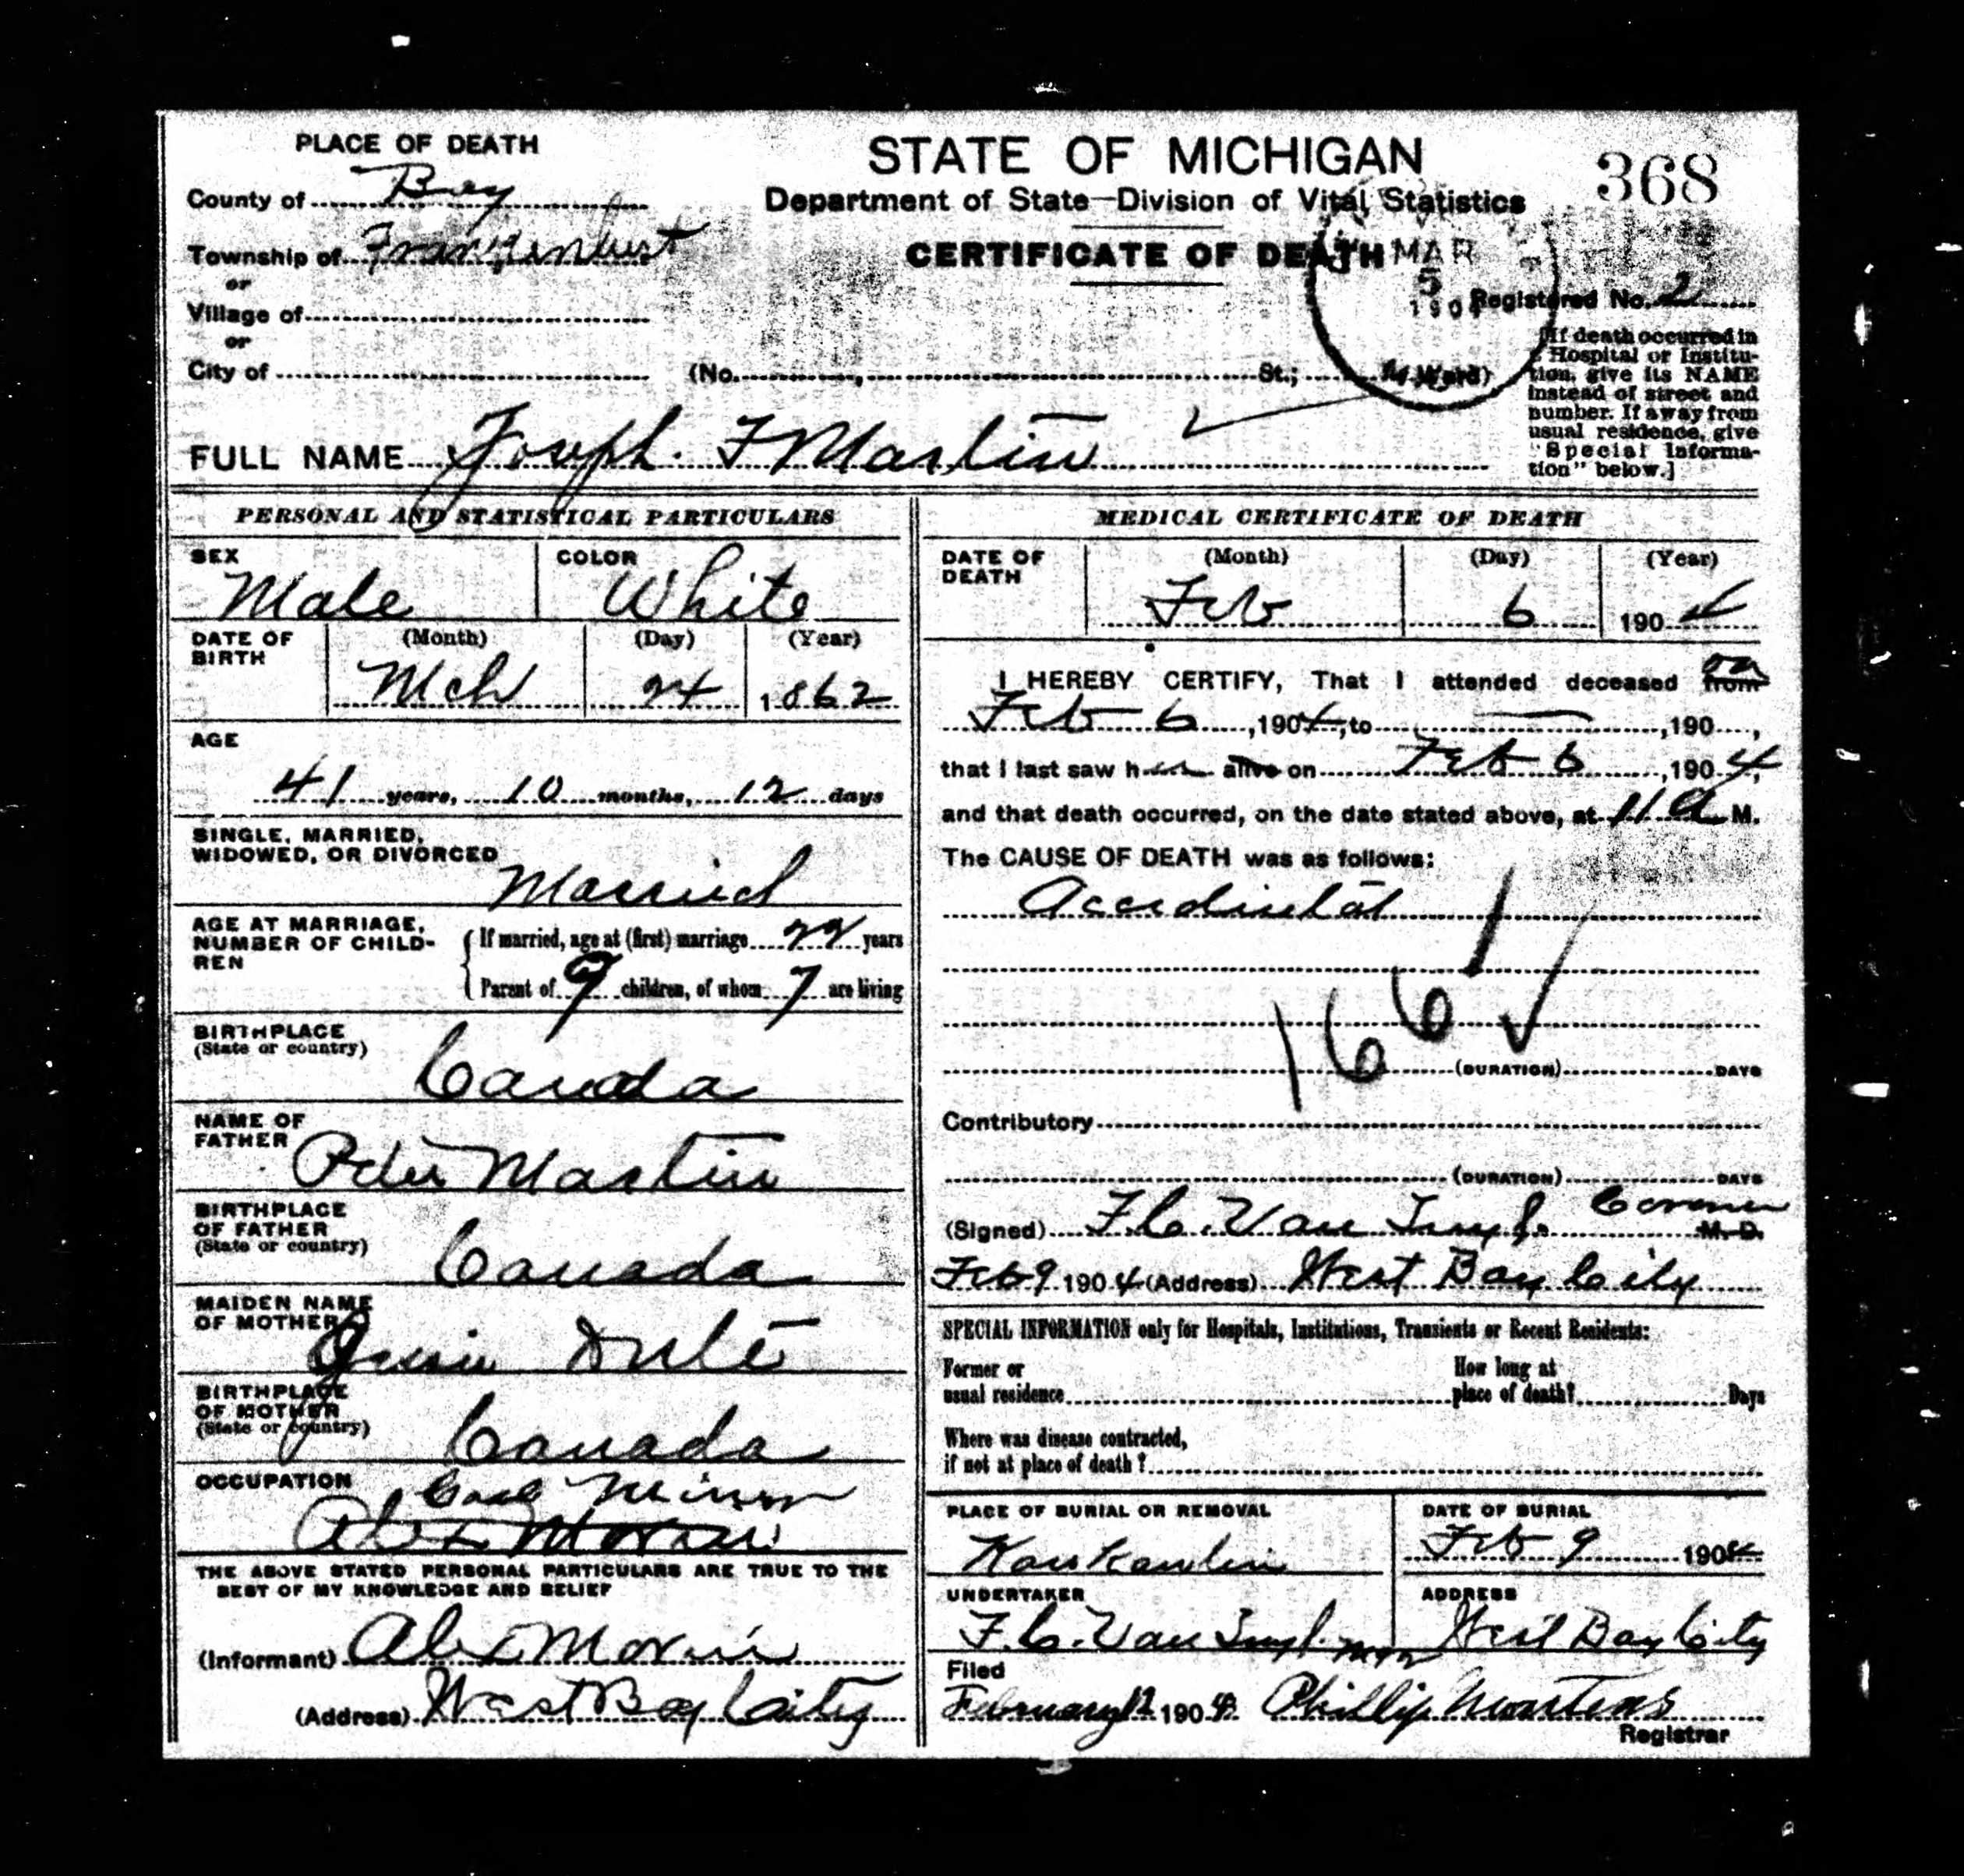 PLACE OF DEATH
County of Bay
Township of Frankenlust
or
Village of
or
City of
STATE OF MICHIGAN
Department of State—Division of Vital Statistics
CERTIFICATE OF DEATH
368
MAR
5
190
Registered No. 2
(No. , St.; Ward)
[If death occurred in
a Hospital or Institu-
tion, give its NAME
instead of street and
number. If away from
usual residence, give
"Special Informa-
tion" below.]
FULL NAME Joseph. F Martin
PERSONAL AND STATISTICAL PARTICULARS
SEX Male
COLOR White
DATE OF BIRTH
(Month) (Day) (Year)
Mch 24 1862
AGE
41 years, 10 months, 12 days
SINGLE, MARRIED,
WIDOWED, OR DIVORCED
Married
AGE AT MARRIAGE,
NUMBER OF CHILD-
REN
If married, age at (first) marriage 22 years
Parent of 9 children, of whom 7 are living
BIRTHPLACE
(State or country)
Canada
NAME OF
FATHER
Peter Martin
BIRTHPLACE
OF FATHER
(State or country)
Canada
MAIDEN NAME
OF MOTHER
BIRTHPLACE
OF MOTHER
(State or country)
Canada
OCCUPATION
Coal Miner
Alex Morin
THE ABOVE STATED PERSONAL PARTICULARS ARE TRUE TO THE
BEST OF MY KNOWLEDGE AND BELIEF
(Informant) Alex Morin
(Address) West Bay City
MEDICAL CERTIFICATE OF DEATH
DATE OF DEATH
(Month) (Day) (Year)
Feb 6 1904
I HEREBY CERTIFY, That I attended deceased from on
Feb 6, 1904, to —, 190 ,
that I last saw h alive on Feb 6, 1904,
and that death occurred, on the date stated above, at 11 a M.
The CAUSE OF DEATH was as follows:
Accidental
166
(DURATION) DAYS
Contributory
(DURATION) DAYS
(Signed) F. C. Van Tuyl. Coroner M. D.
Feb 9 1904 (Address) West Bay City
SPECIAL INFORMATION only for Hospitals, Institutions, Transients or Recent Residents:
Former or
usual residence
How long at
place of death? Days
Where was disease contracted,
if not at place of death?
PLACE OF BURIAL OR REMOVAL
Kawkawlin
DATE OF BURIAL
Feb 9 1904
UNDERTAKER
F. C. Van Tuyl.
ADDRESS
West Bay City
Filed
February 12 1904 Phillip Martens
Registrar